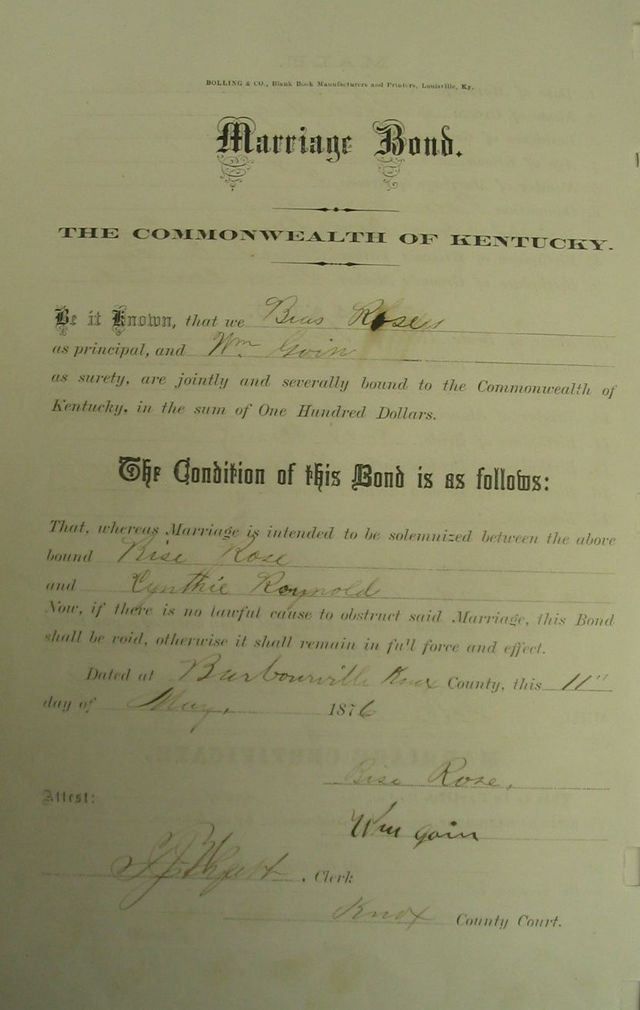 BOLLING & CO., Blank Book Manufacturers and Printers, Louisville, Ky.
Marriage Bond.
THE COMMONWEALTH OF KENTUCKY.
Be it Known, that we Bias Rose
as principal, and Wm Goin
as surety, are jointly and severally bound to the Commonwealth of
Kentucky, in the sum of One Hundred Dollars.
The Condition of this Bond is as follows:
That, whereas Marriage is intended to be solemnized between the above
bound Bise Rose
and Cynthie Roynold
Now, if there is no lawful cause to obstruct said Marriage, this Bond
shall be void, otherwise it shall remain in full force and effect.
Dated at Barbourville Knox County, this 11"
day of May, 1876
Bise Rose,
Attest:
Wm goin
, Clerk
Knox County Court.